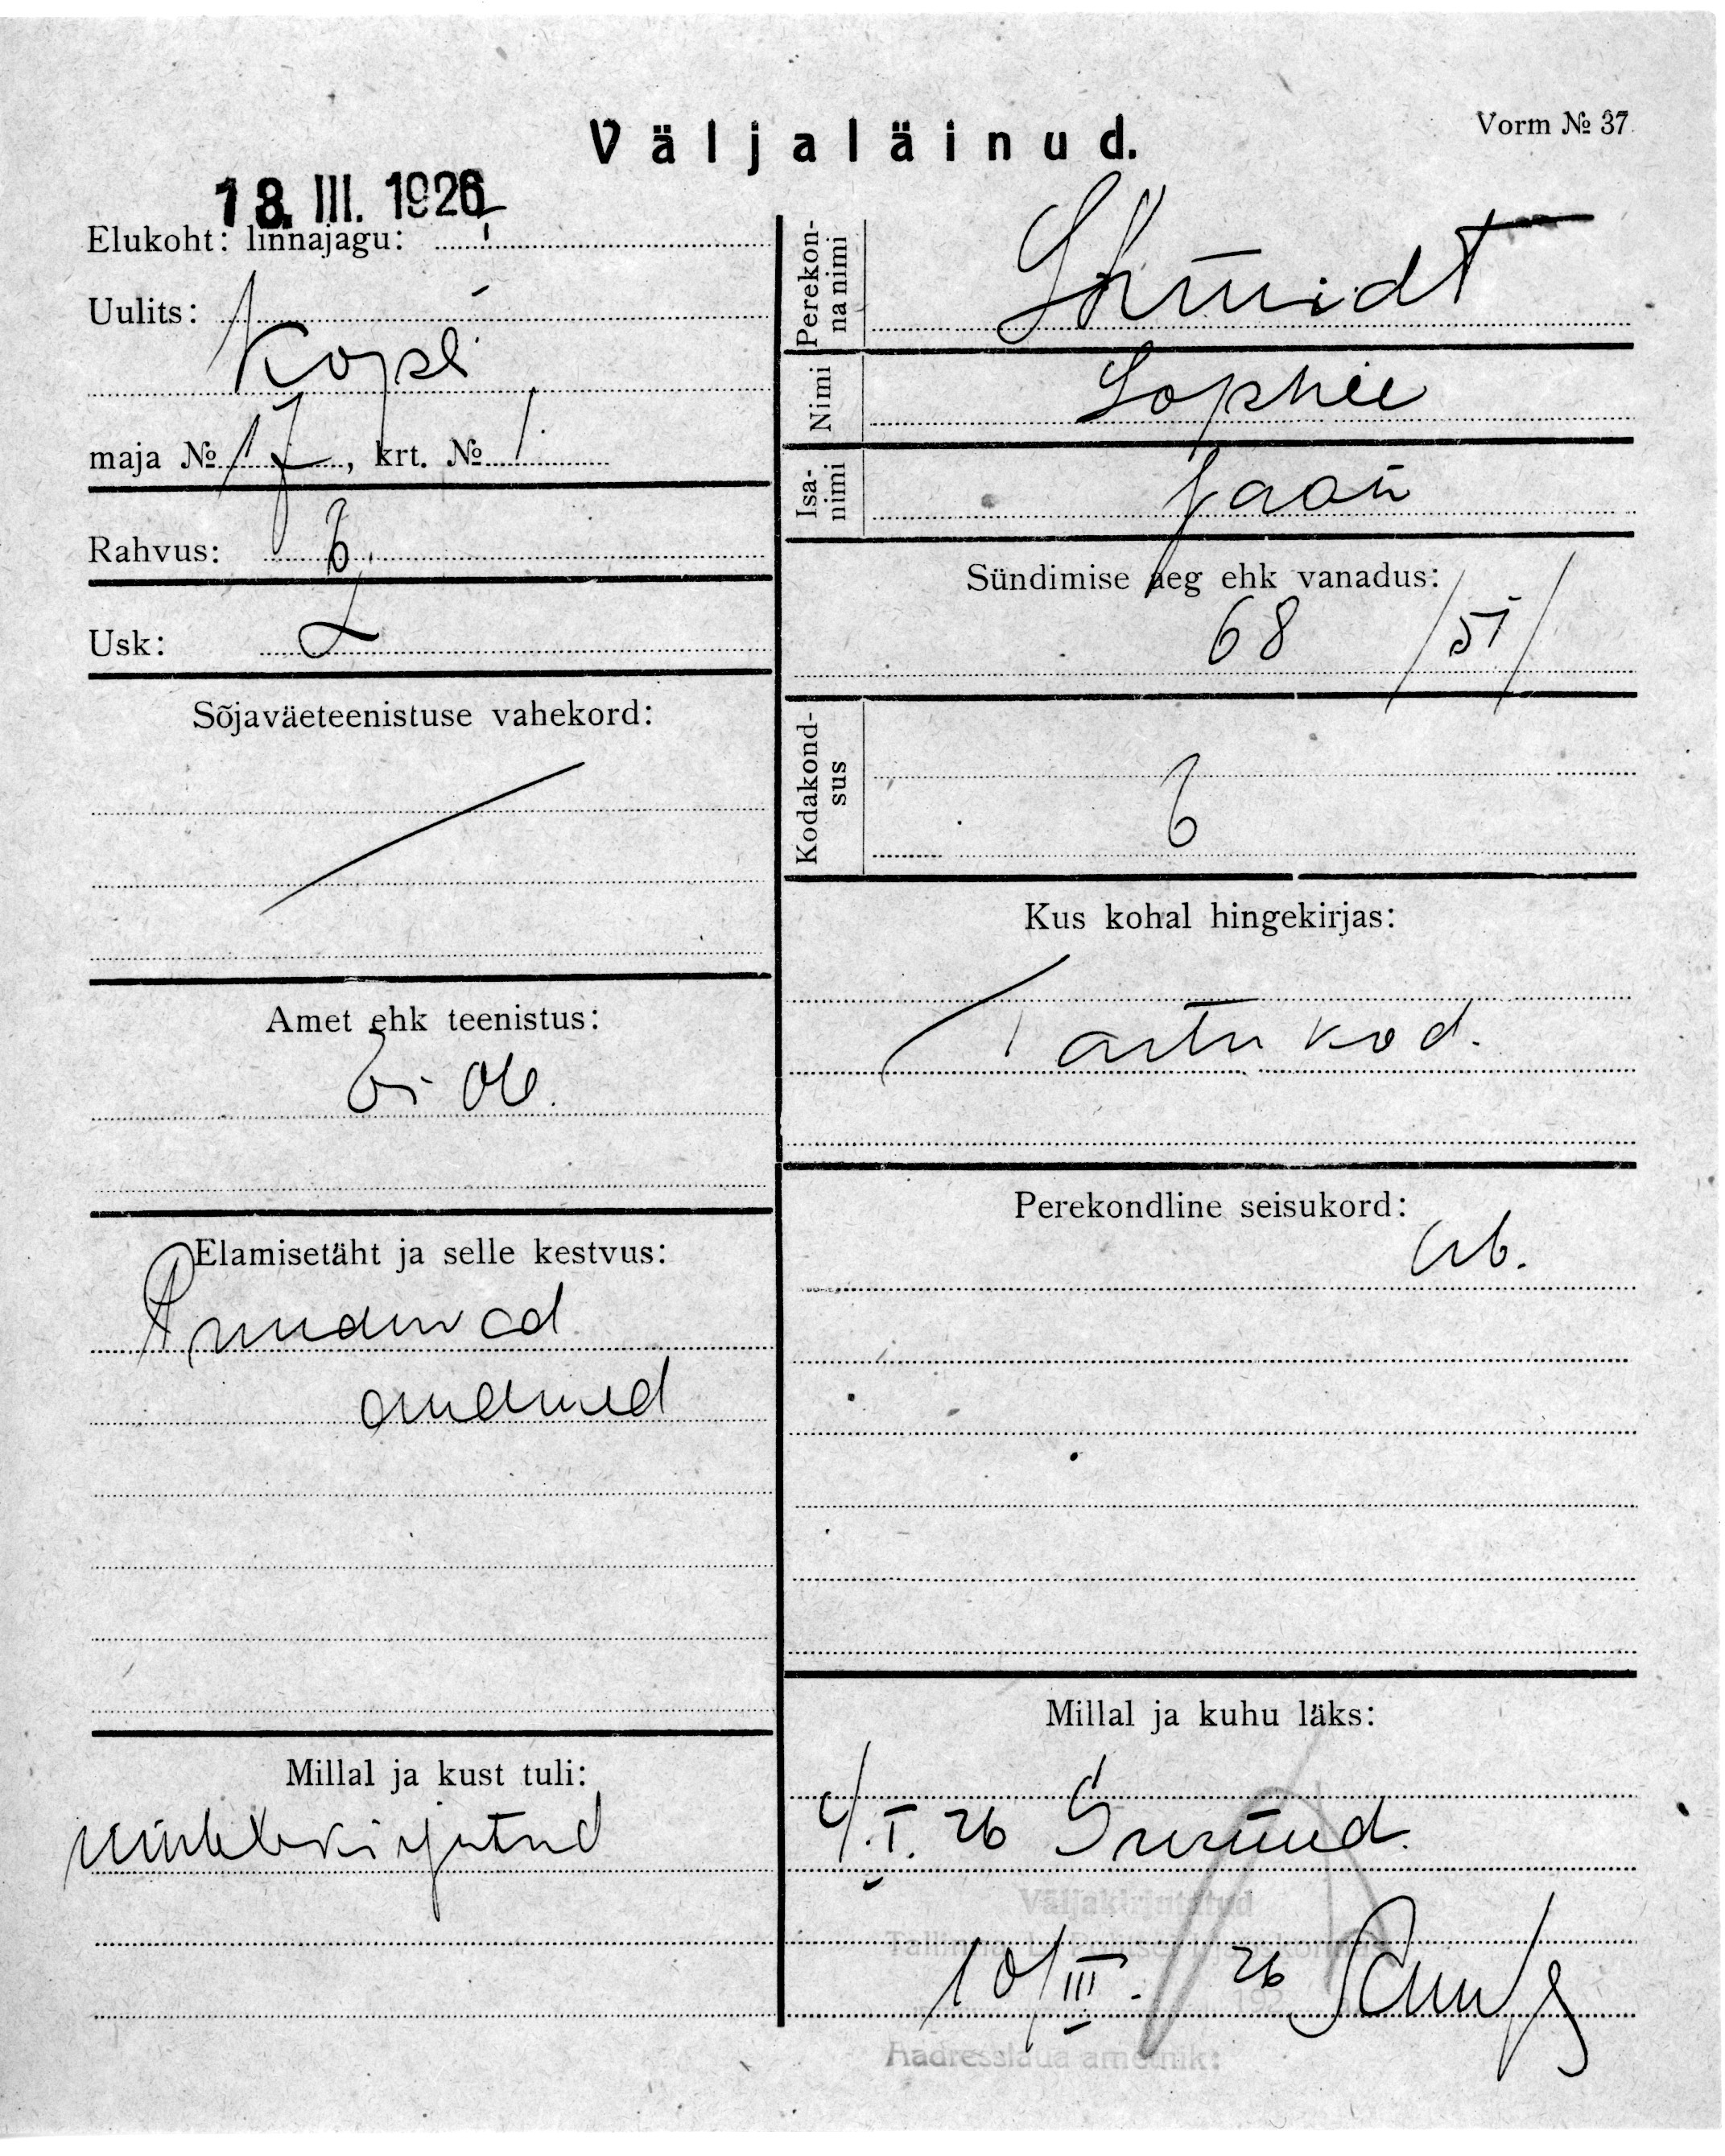 Väljaläinud.
Vorm № 37.
18. III. 1926
Elukoht: linnajagu:
Uulits:
Kopli
maja № 17, krt. № 1
Rahvus: E.
Usk: L
Sõjaväeteenistuse vahekord:
Amet ehk teenistus:
Ei ole.
Elamisetäht ja selle kestvus:
Puuduvad
andmed
Millal ja kust tuli:
Perekonna nimi
Schmidt
Nimi
Sophie
Isanimi
Jaan
Sündimise aeg ehk vanadus:
68 /57/
Kodakondsus
E
Kus kohal hingekirjas:
Tartu kod.
Perekondline seisukord:
Millal ja kuhu läks:
4/I. 26 Surnud.
Väljakirjutatud
10/III. 26
192
Aadresslaua ametnik: